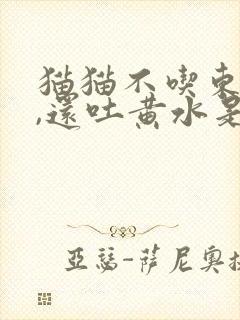 猫猫不喫東
,還吐黄水是
亞瑟-薩尼奧拉